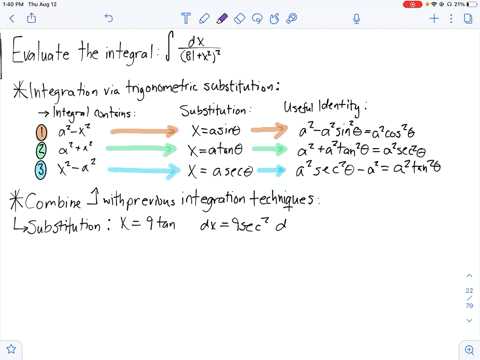 1:40 PM Thu Aug 12
21%
Evaluate the integral: ∫ dx/(81+x²)²
*Integration via trigonometric substitution:
→ Integral contains: Substitution: Useful Identity:
1 a²-x² x=asinθ a²-a²sin²θ=a²cos²θ
2 a²+x² x=atanθ a²+a²tan²θ=a²sec²θ
3 x²-a² x=asecθ a²sec²θ-a²=a²tan²θ
*Combine ↑ with previous integration techniques:
↳Substitution: x=9tan dx=9sec² d
22
79